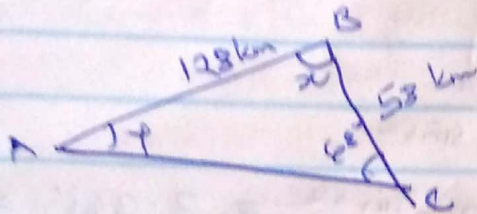 B
128km
x
58 km
A
φ
62°
C